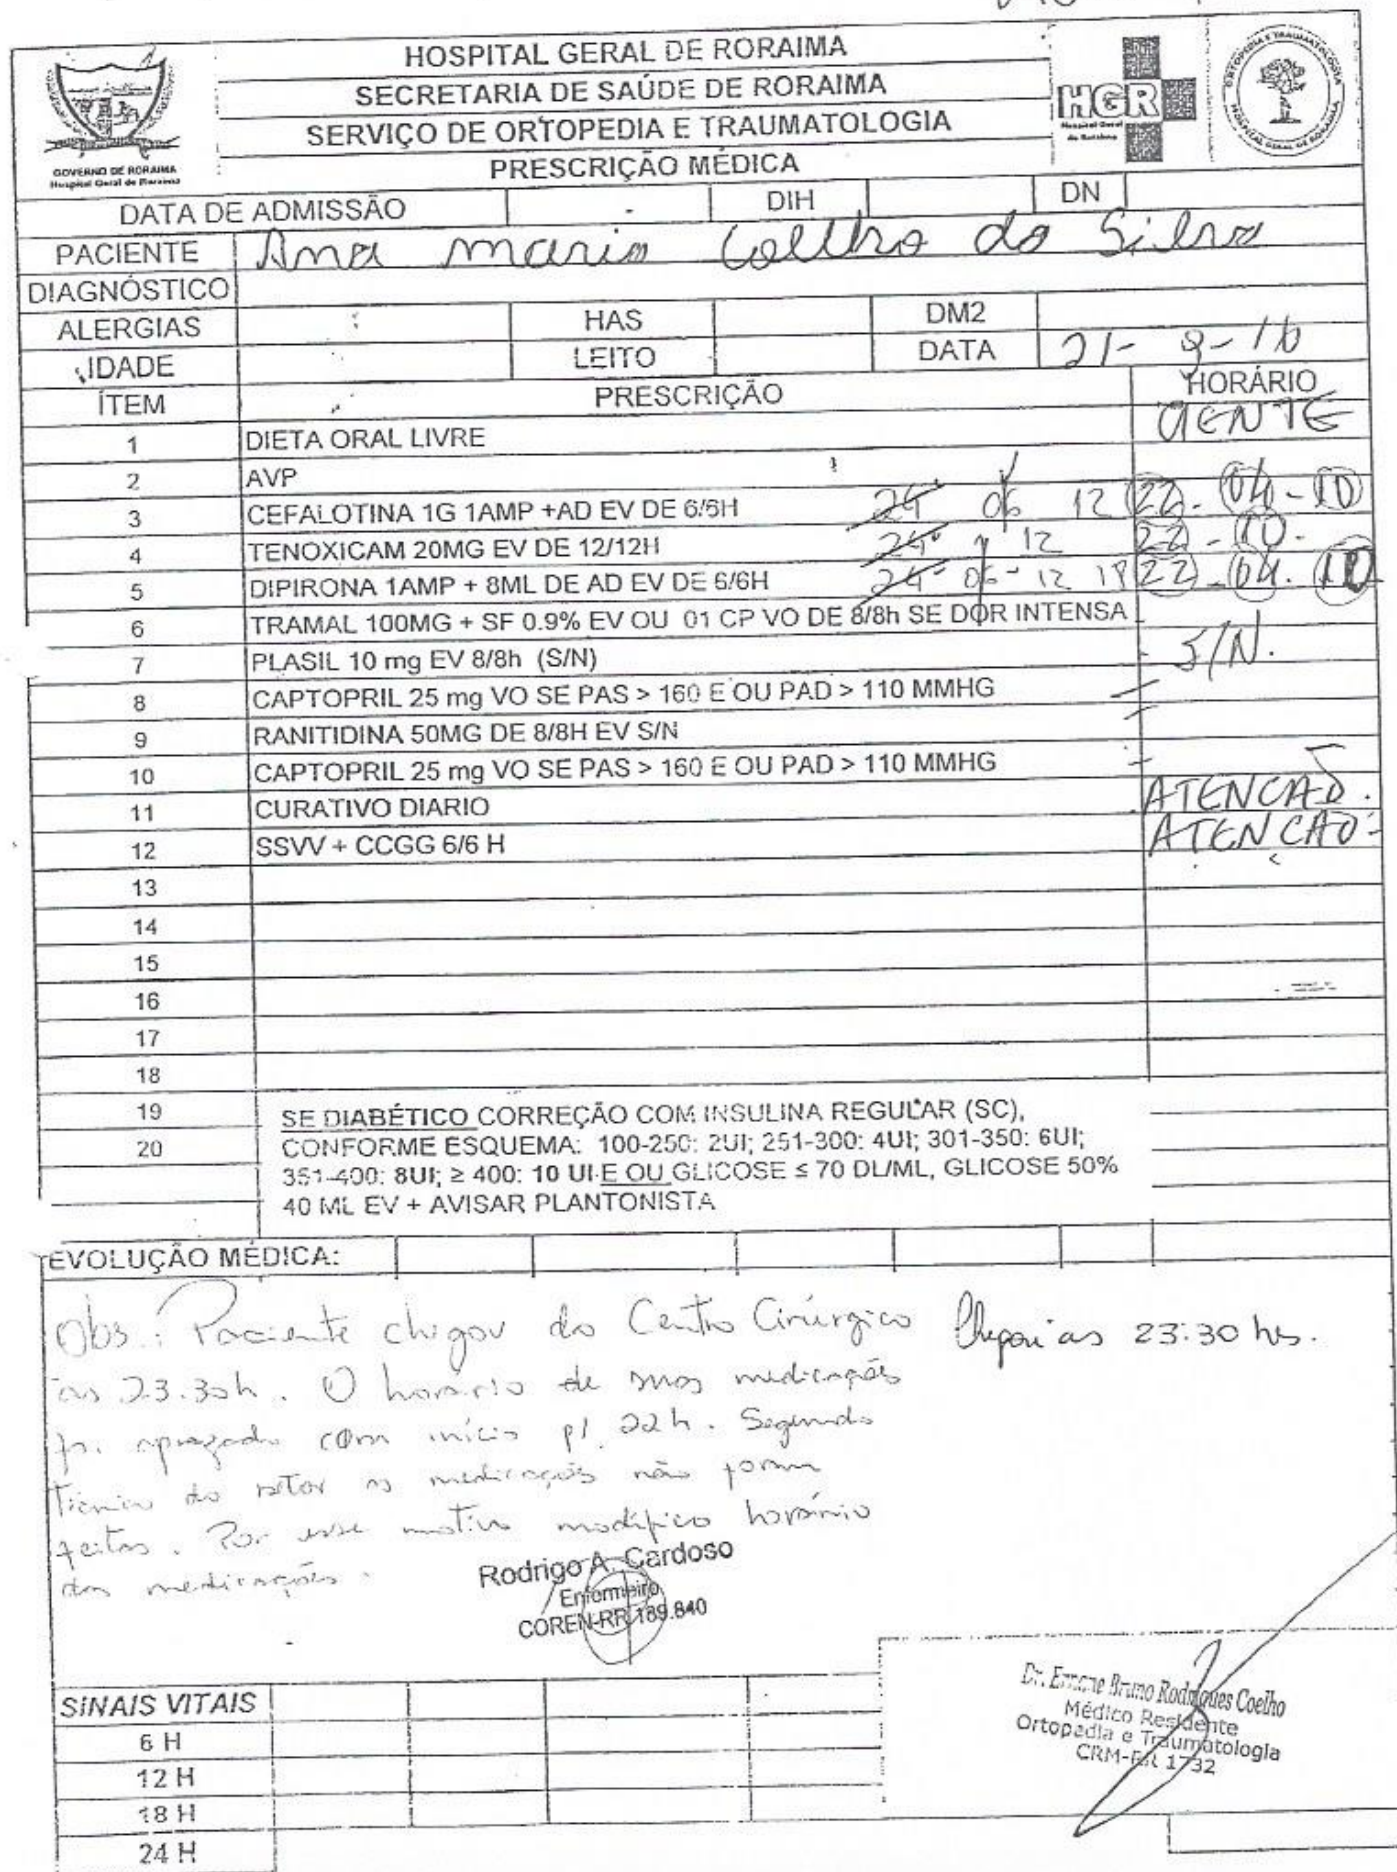 HOSPITAL GERAL DE RORAIMA
SECRETARIA DE SAÚDE DE RORAIMA
SERVIÇO DE ORTOPEDIA E TRAUMATOLOGIA
PRESCRIÇÃO MÉDICA
GOVERNO DE RORAIMA
Hospital Geral de Roraima
HGR
Hospital Geral
de Roraima
ORTOPEDIA E TRAUMATOLOGIA
HOSPITAL GERAL DE RORAIMA
DATA DE ADMISSÃO DIH DN
PACIENTE Ana maria Coelho da Silva
DIAGNÓSTICO
ALERGIAS HAS DM2
IDADE LEITO DATA 21-9-16
ÍTEM PRESCRIÇÃO HORÁRIO
1 DIETA ORAL LIVRE CIENTE
2 AVP
3 CEFALOTINA 1G 1AMP +AD EV DE 6/6H 24 06 12 22 - 04 - 10
4 TENOXICAM 20MG EV DE 12/12H 24 12 22 - 10 -
5 DIPIRONA 1AMP + 8ML DE AD EV DE 6/6H 24 - 06 - 12 18 22 - 04 - 10
6 TRAMAL 100MG + SF 0.9% EV OU 01 CP VO DE 8/8h SE DOR INTENSA
7 PLASIL 10 mg EV 8/8h (S/N) S/N.
8 CAPTOPRIL 25 mg VO SE PAS > 160 E OU PAD > 110 MMHG
9 RANITIDINA 50MG DE 8/8H EV S/N
10 CAPTOPRIL 25 mg VO SE PAS > 160 E OU PAD > 110 MMHG
11 CURATIVO DIARIO ATENCAO.
12 SSVV + CCGG 6/6 H ATENCAO
13
14
15
16
17
18
19 SE DIABÉTICO CORREÇÃO COM INSULINA REGULAR (SC),
20 CONFORME ESQUEMA: 100-250: 2UI; 251-300: 4UI; 301-350: 6UI;
351-400: 8UI; ≥ 400: 10 UI E OU GLICOSE ≤ 70 DL/ML, GLICOSE 50%
40 ML EV + AVISAR PLANTONISTA
EVOLUÇÃO MÉDICA:
Obs.: Paciente chegou do Centro Cirúrgico Chegou as 23:30 hs.
às 23:30h. O horário de suas medicações
foi aprazado com início p/ 22h. Segundo
técnico do setor as medicações não foram
feitas. Por esse motivo modifico horário
das medicações.
Rodrigo A. Cardoso
Enfermeiro
COREN-RR 189.840
Bruno Rodrigues Coelho
Médico Residente
Ortopedia e Traumatologia
CRM-RR 1732
SINAIS VITAIS
6 H
12 H
18 H
24 H